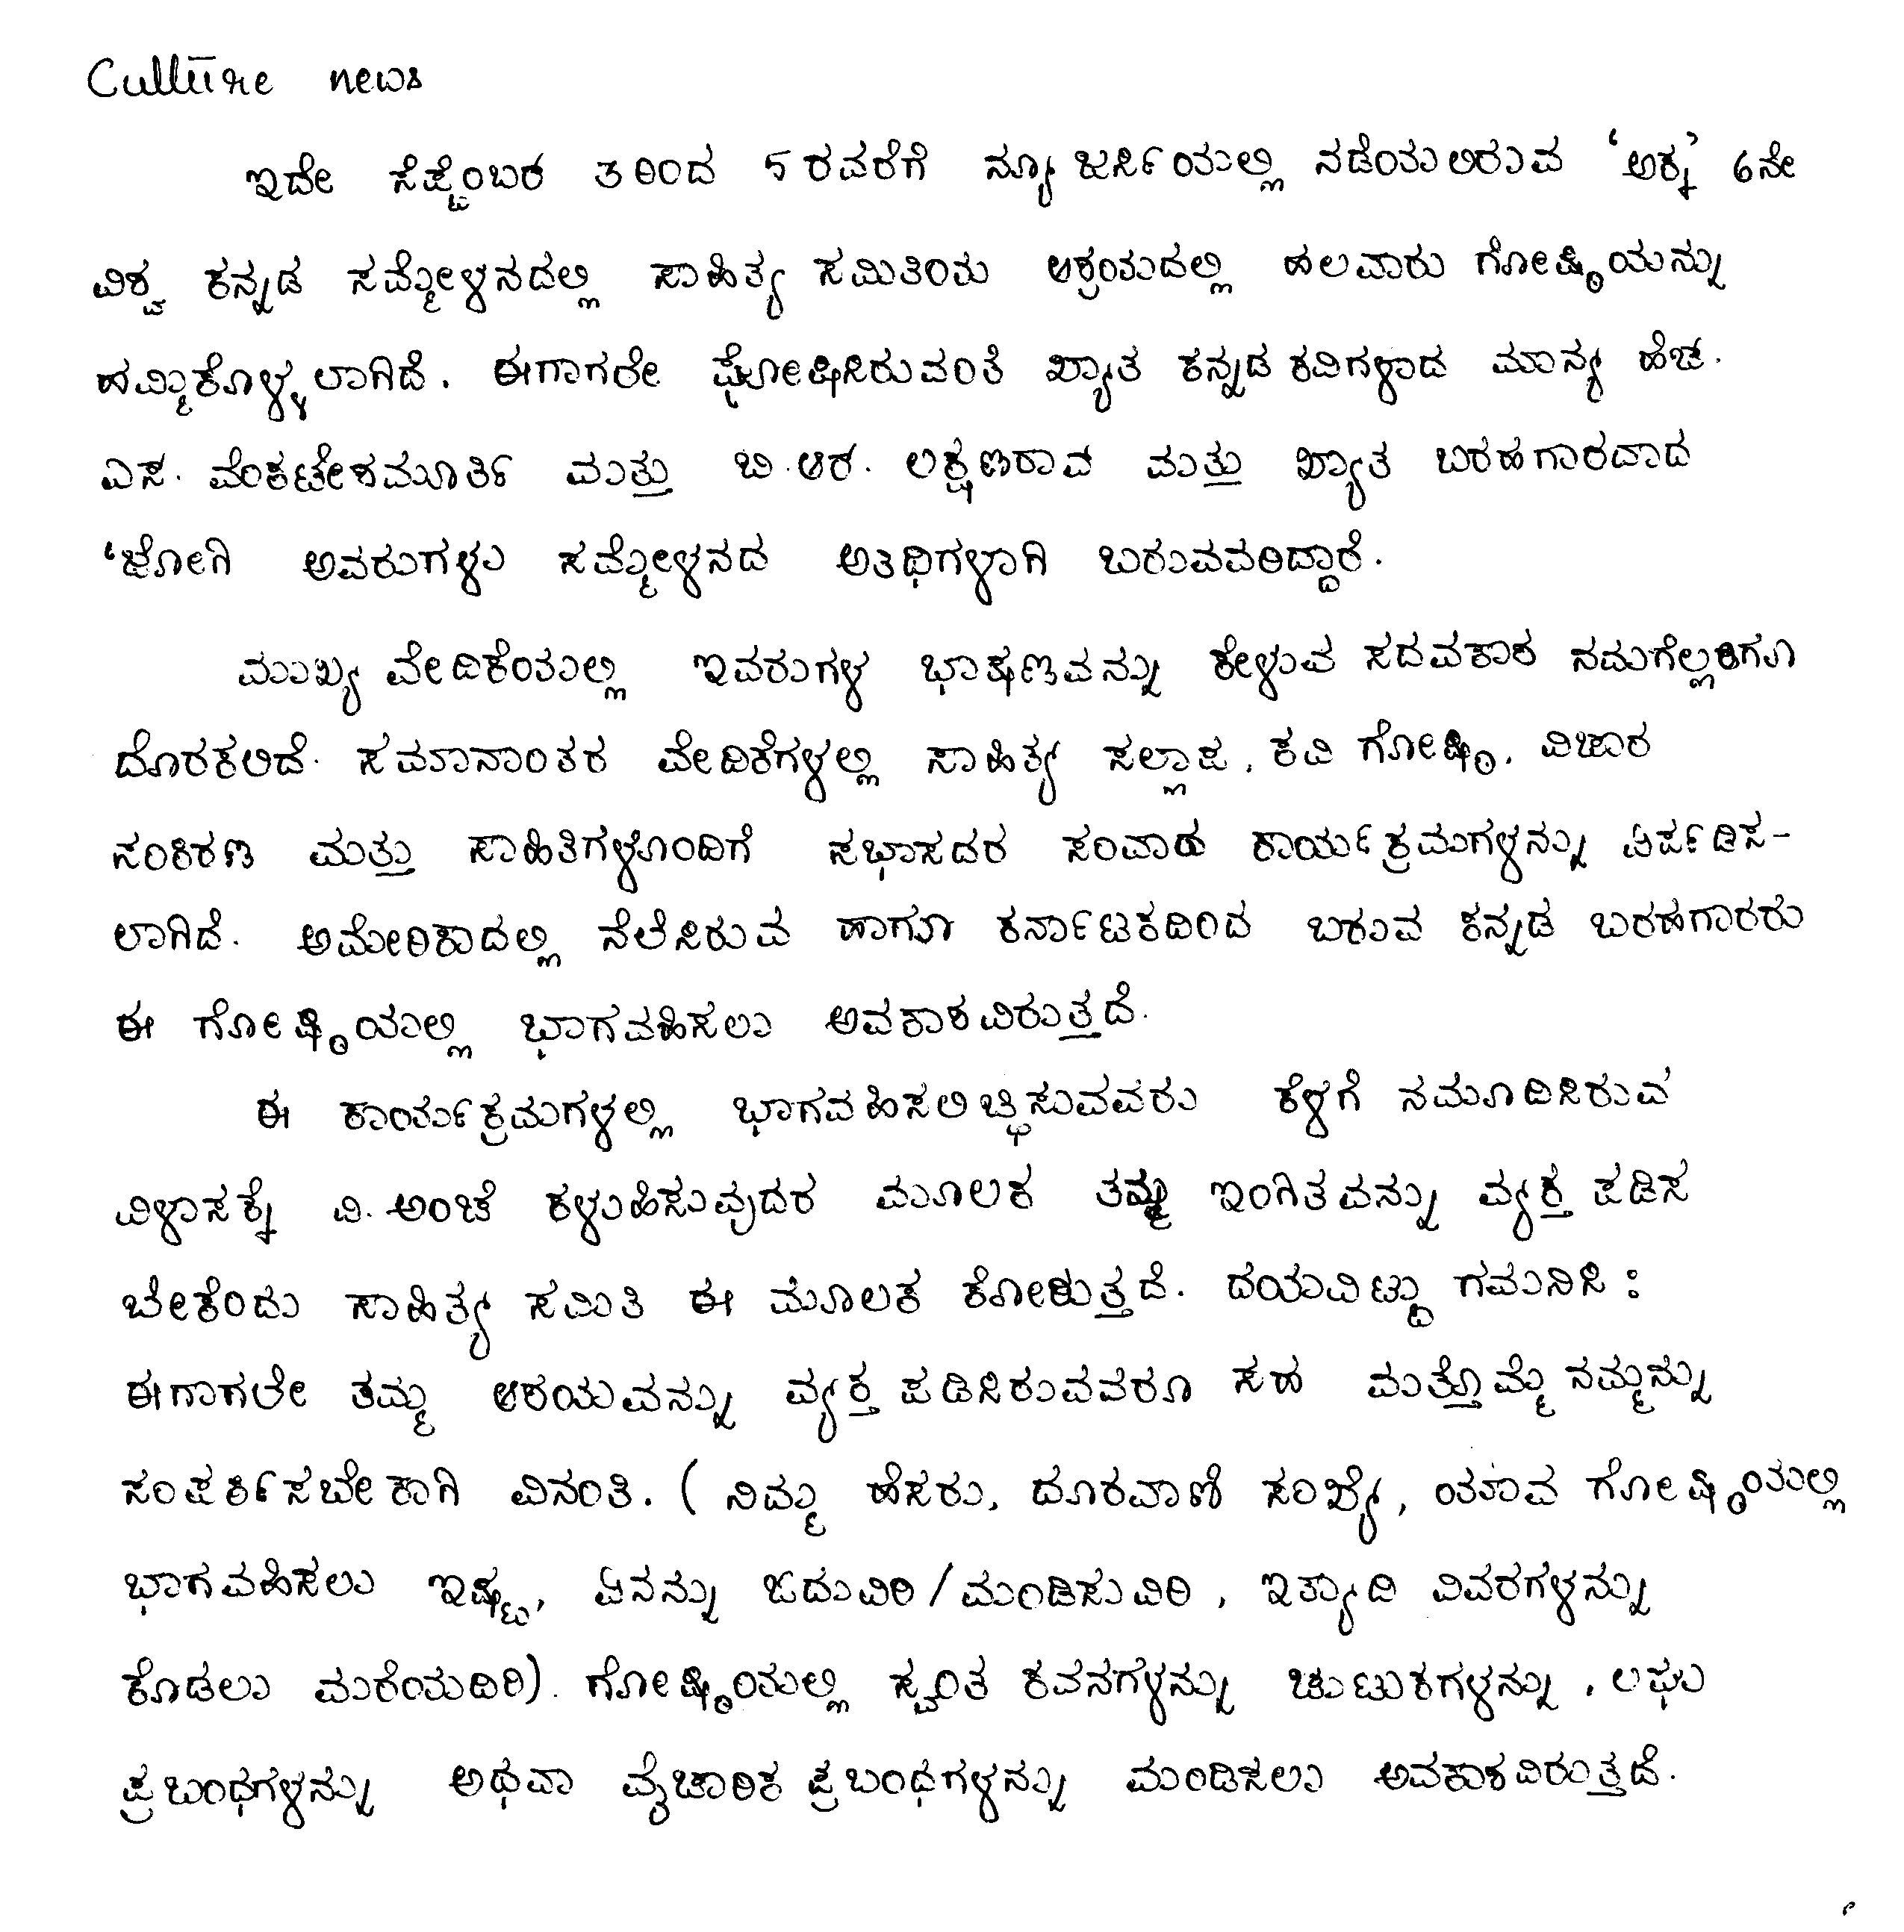 Culture news
ಇದೇ ಸೆಪ್ಟೆಂಬರ 3ರಿಂದ 5ರವರೆಗೆ ನ್ಯೂಜರ್ಸಿಯಲ್ಲಿ ನಡೆಯಲಿರುವ 'ಅಕ್ಕ' 6ನೇ
ವಿಶ್ವ ಕನ್ನಡ ಸಮ್ಮೇಳನದಲ್ಲಿ ಸಾಹಿತ್ಯ ಸಮಿತಿಯ ಆಶ್ರಯದಲ್ಲಿ ಹಲವಾರು ಗೋಷ್ಠಿಯನ್ನು
ಹಮ್ಮಿಕೊಳ್ಳಲಾಗಿದೆ. ಈಗಾಗಲೇ ಘೋಷಿಸಿರುವಂತೆ ಖ್ಯಾತ ಕನ್ನಡ ಕವಿಗಳಾದ ಮಾನ್ಯ ಹೆಚ.
ಎಸ. ವೆಂಕಟೇಶಮೂರ್ತಿ ಮತ್ತು ಬಿ.ಆರ. ಲಕ್ಷ್ಮಣರಾವ ಮತ್ತು ಖ್ಯಾತ ಬರಹಗಾರವಾದ
'ಜೋಗಿ ಅವರುಗಳು ಸಮ್ಮೇಳನದ ಅತಿಥಿಗಳಾಗಿ ಬರುವವರಿದ್ದಾರೆ.
ಮುಖ್ಯ ವೇದಿಕೆಯಲ್ಲಿ ಇವರುಗಳ ಭಾಷಣವನ್ನು ಕೇಳುವ ಸದವಕಾಶ ನಮಗೆಲ್ಲರಿಗೂ
ದೊರಕಲಿದೆ. ಸಮಾನಾಂತರ ವೇದಿಕೆಗಳಲ್ಲಿ ಸಾಹಿತ್ಯ ಸಲ್ಲಾಪ, ಕವಿ ಗೋಷ್ಠಿ, ವಿಚಾರ
ಸಂಕಿರಣ ಮತ್ತು ಸಾಹಿತಿಗಳೊಂದಿಗೆ ಸಭಾಸದರ ಸಂವಾದ ಕಾರ್ಯಕ್ರಮಗಳನ್ನು ಏರ್ಪಡಿಸ-
ಲಾಗಿದೆ. ಅಮೇರಿಕಾದಲ್ಲಿ ನೆಲೆಸಿರುವ ಹಾಗೂ ಕರ್ನಾಟಕದಿಂದ ಬರುವ ಕನ್ನಡ ಬರಹಗಾರರು
ಈ ಗೋಷ್ಠಿಯಲ್ಲಿ ಭಾಗವಹಿಸಲು ಅವಕಾಶವಿರುತ್ತದೆ.
ಈ ಕಾರ್ಯಕ್ರಮಗಳಲ್ಲಿ ಭಾಗವಹಿಸಲಿಚ್ಛಿಸುವವರು ಕೆಳಗೆ ನಮೂದಿಸಿರುವ
ವಿಳಾಸಕ್ಕೆ ವಿ.ಅಂಚೆ ಕಳುಹಿಸುವುದರ ಮೂಲಕ ತಮ್ಮ ಇಂಗಿತವನ್ನು ವ್ಯಕ್ತ ಪಡಿಸ
ಬೇಕೆಂದು ಸಾಹಿತ್ಯ ಸಮಿತಿ ಈ ಮೂಲಕ ಕೋರುತ್ತದೆ. ದಯವಿಟ್ಟು ಗಮನಿಸಿ:
ಈಗಾಗಲೇ ತಮ್ಮ ಆಶಯವನ್ನು ವ್ಯಕ್ತ ಪಡಿಸಿರುವವರೂ ಸಹ ಮತ್ತೊಮ್ಮೆ ನಮ್ಮನ್ನು
ಸಂಪರ್ಕಿಸಬೇಕಾಗಿ ವಿನಂತಿ. (ನಿಮ್ಮ ಹೆಸರು, ದೂರವಾಣಿ ಸಂಖ್ಯೆ, ಯಾವ ಗೋಷ್ಠಿಯಲ್ಲಿ
ಭಾಗವಹಿಸಲು ಇಷ್ಟ, ಏನನ್ನು ಓದುವಿರಿ/ಮಂಡಿಸುವಿರಿ, ಇತ್ಯಾದಿ ವಿವರಗಳನ್ನು
ಕೊಡಲು ಮರೆಯದಿರಿ). ಗೋಷ್ಠಿಯಲ್ಲಿ ಸ್ವಂತ ಕವನಗಳನ್ನು ಚುಟುಕಗಳನ್ನು, ಲಘು
ಪ್ರಬಂಧಗಳನ್ನು ಅಥವಾ ವೈಚಾರಿಕ ಪ್ರಬಂಧಗಳನ್ನು ಮಂಡಿಸಲು ಅವಕಾಶವಿರುತ್ತದೆ.